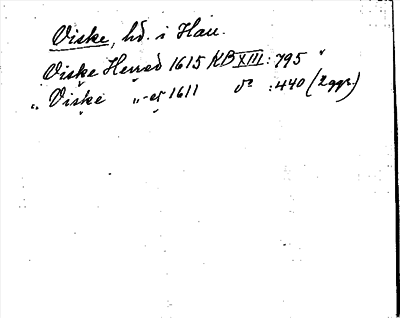 Viske, hd. i Hall.
Viske Herred 1615 KB XIII: 795 "
„ Viske „-et 1611 do :440 (2 ggr.)